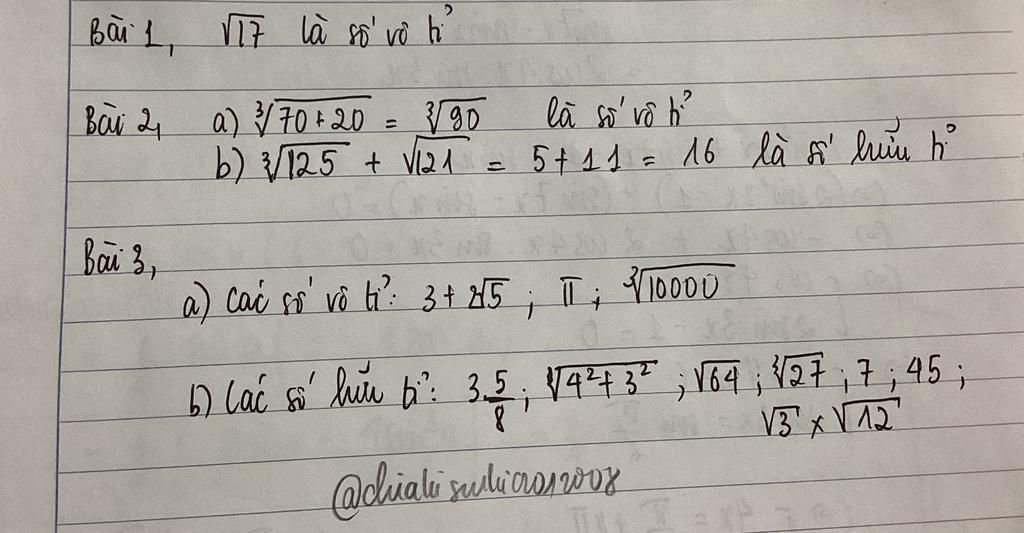 Bài 1, √17 là số vô tỉ
Bài 2, a) ∛(70+20) = ∛90 là số vô tỉ
b) ∛125 + √121 = 5+11 = 16 là số hữu tỉ
Bài 3,
a) Các số vô tỉ: 3 + 2√5 ; π ; ∛10000
b) Các số hữu tỉ: 3 5/8 ; √(4²+3²) ; √64 ; ∛27 ; 7 ; 45 ;
√3 × √12